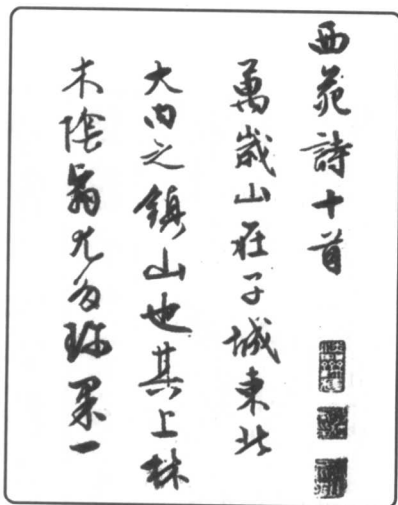 西苑詩十首
萬歲山在子城東北
大內之鎮山也其上林
木陰翳尤多珍果一